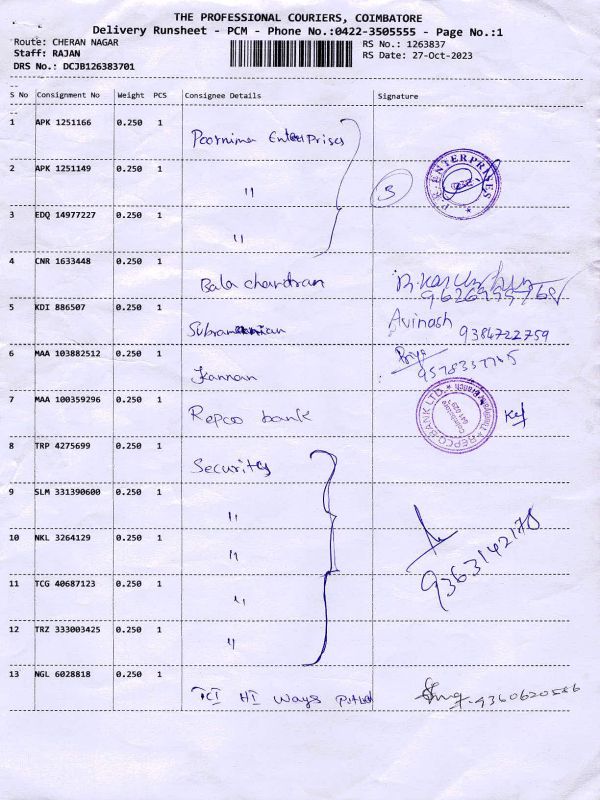 THE PROFESSIONAL COURIERS, COIMBATORE
Delivery Runsheet - PCM - Phone No.:0422-3505555 - Page No.:1
Route: CHERAN NAGAR RS No.: 1263837
Staff: RAJAN RS Date: 27-Oct-2023
DRS No.: DCJB126383701
S No Consignment No Weight PCS Consignee Details Signature
1 APK 1251166 0.250 1 Poornima Enterprises
2 APK 1251149 0.250 1 " 3
3 EDQ 14977227 0.250 1 "
4 CNR 1633448 0.250 1 Bala chandran
5 KDI 886507 0.250 1 Avinash 9384722759
6 MAA 103882512 0.250 1 Kannan Priya
7 MAA 100359296 0.250 1 Repco bank REPCO BANK LTD.
8 TRP 4275699 0.250 1 Security
9 SLM 331390600 0.250 1 "
10 NKL 3264129 0.250 1 "
11 TCG 40687123 0.250 1 " 9363142178
12 TRZ 333003425 0.250 1 "
13 NGL 6028818 0.250 1 TCI HI Ways